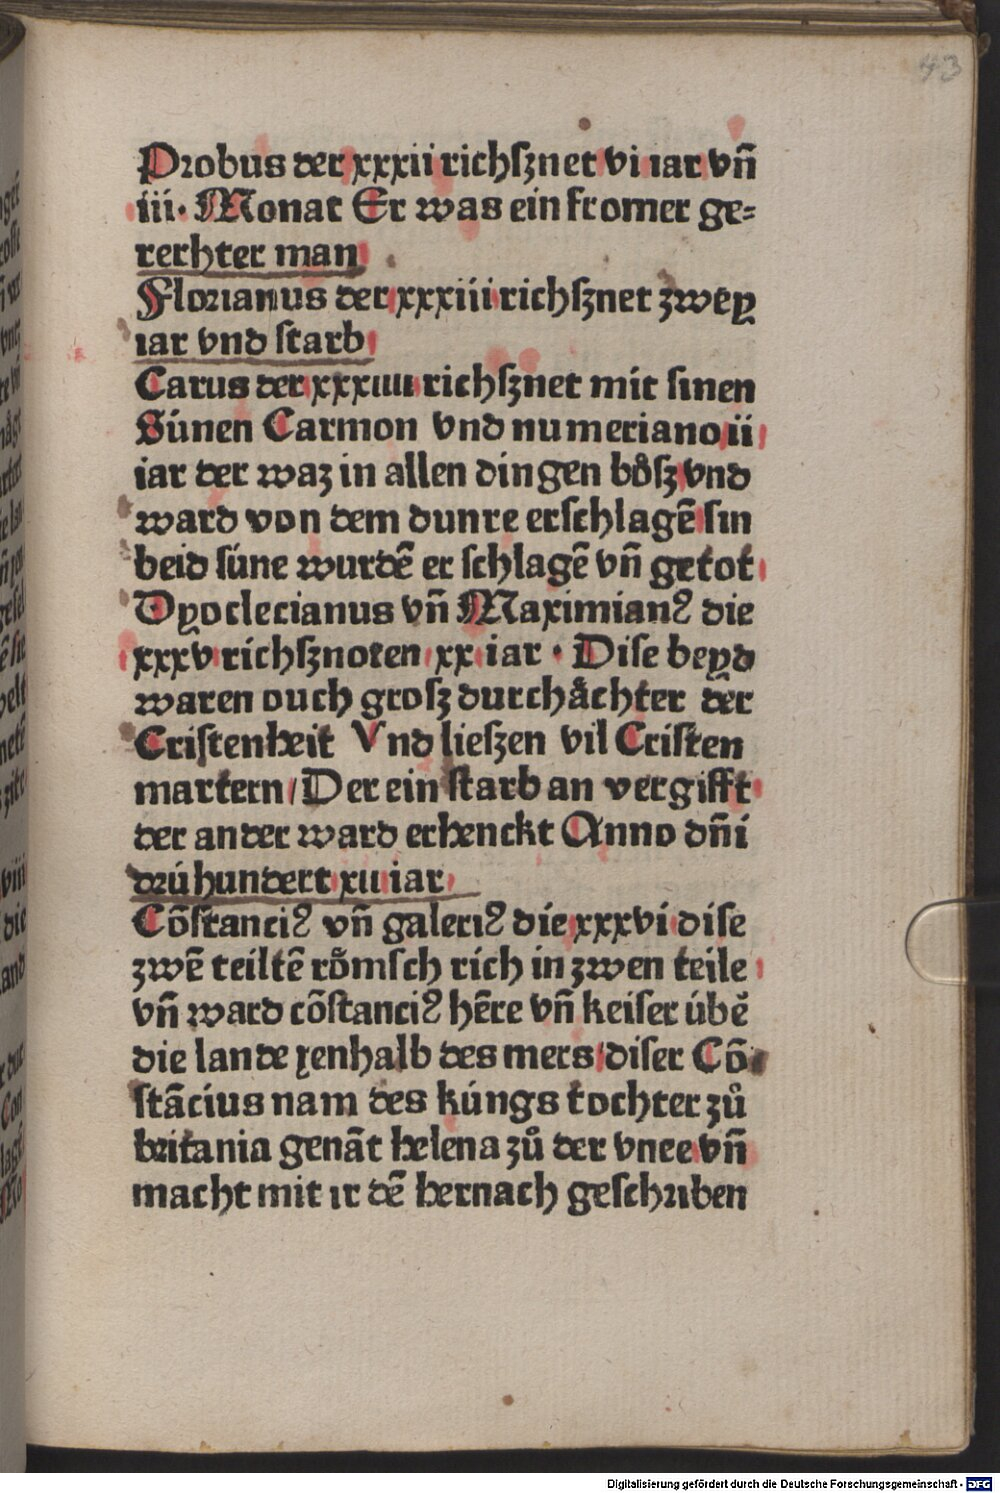 43
Probus der xxxii richſznet vi iar vn̄
iii. Monat Er was ein fromer ge⸗
rechter man
Florianus der xxxiii richſznet zwey
iar vnd ſtarb
Carus der xxxiiii richſznet mit ſinen
Súnen Carmon vnd numeriano ii
iar der waz in allen dingen boͤſz vnd
ward von dem dunre erſchlagē ſin
beid ſúne wurdē er ſchlagē vn̄ getot
Dyoclecianus vn̄ Maximianꝰ die
xxxv richſznoten xx iar · Diſe beyd
waren ouch groſz durchaͤchter der
Criſtenheit Vnd lieſzen vil Criſten
martern / Der ein ſtarb an vergifft
der ander ward erhenckt Anno dn̄i
drú hundert xii iar
Cōſtanciꝰ vn̄ galeriꝰ die xxxvi diſe
zwē teiltē roͤmſch rich in zwen teile
vn̄ ward cōſtanciꝰ hēre vn̄ keiſer úbē
die lande yenhalb des mers diſer Cō
ſtācius nam des kúngs tochter zuͦ
britania genāt helena zuͦ der vnee vn̄
macht mit ir dē hernach geſchriben
Digitalisierung gefördert durch die Deutsche Forschungsgemeinschaft - DFG